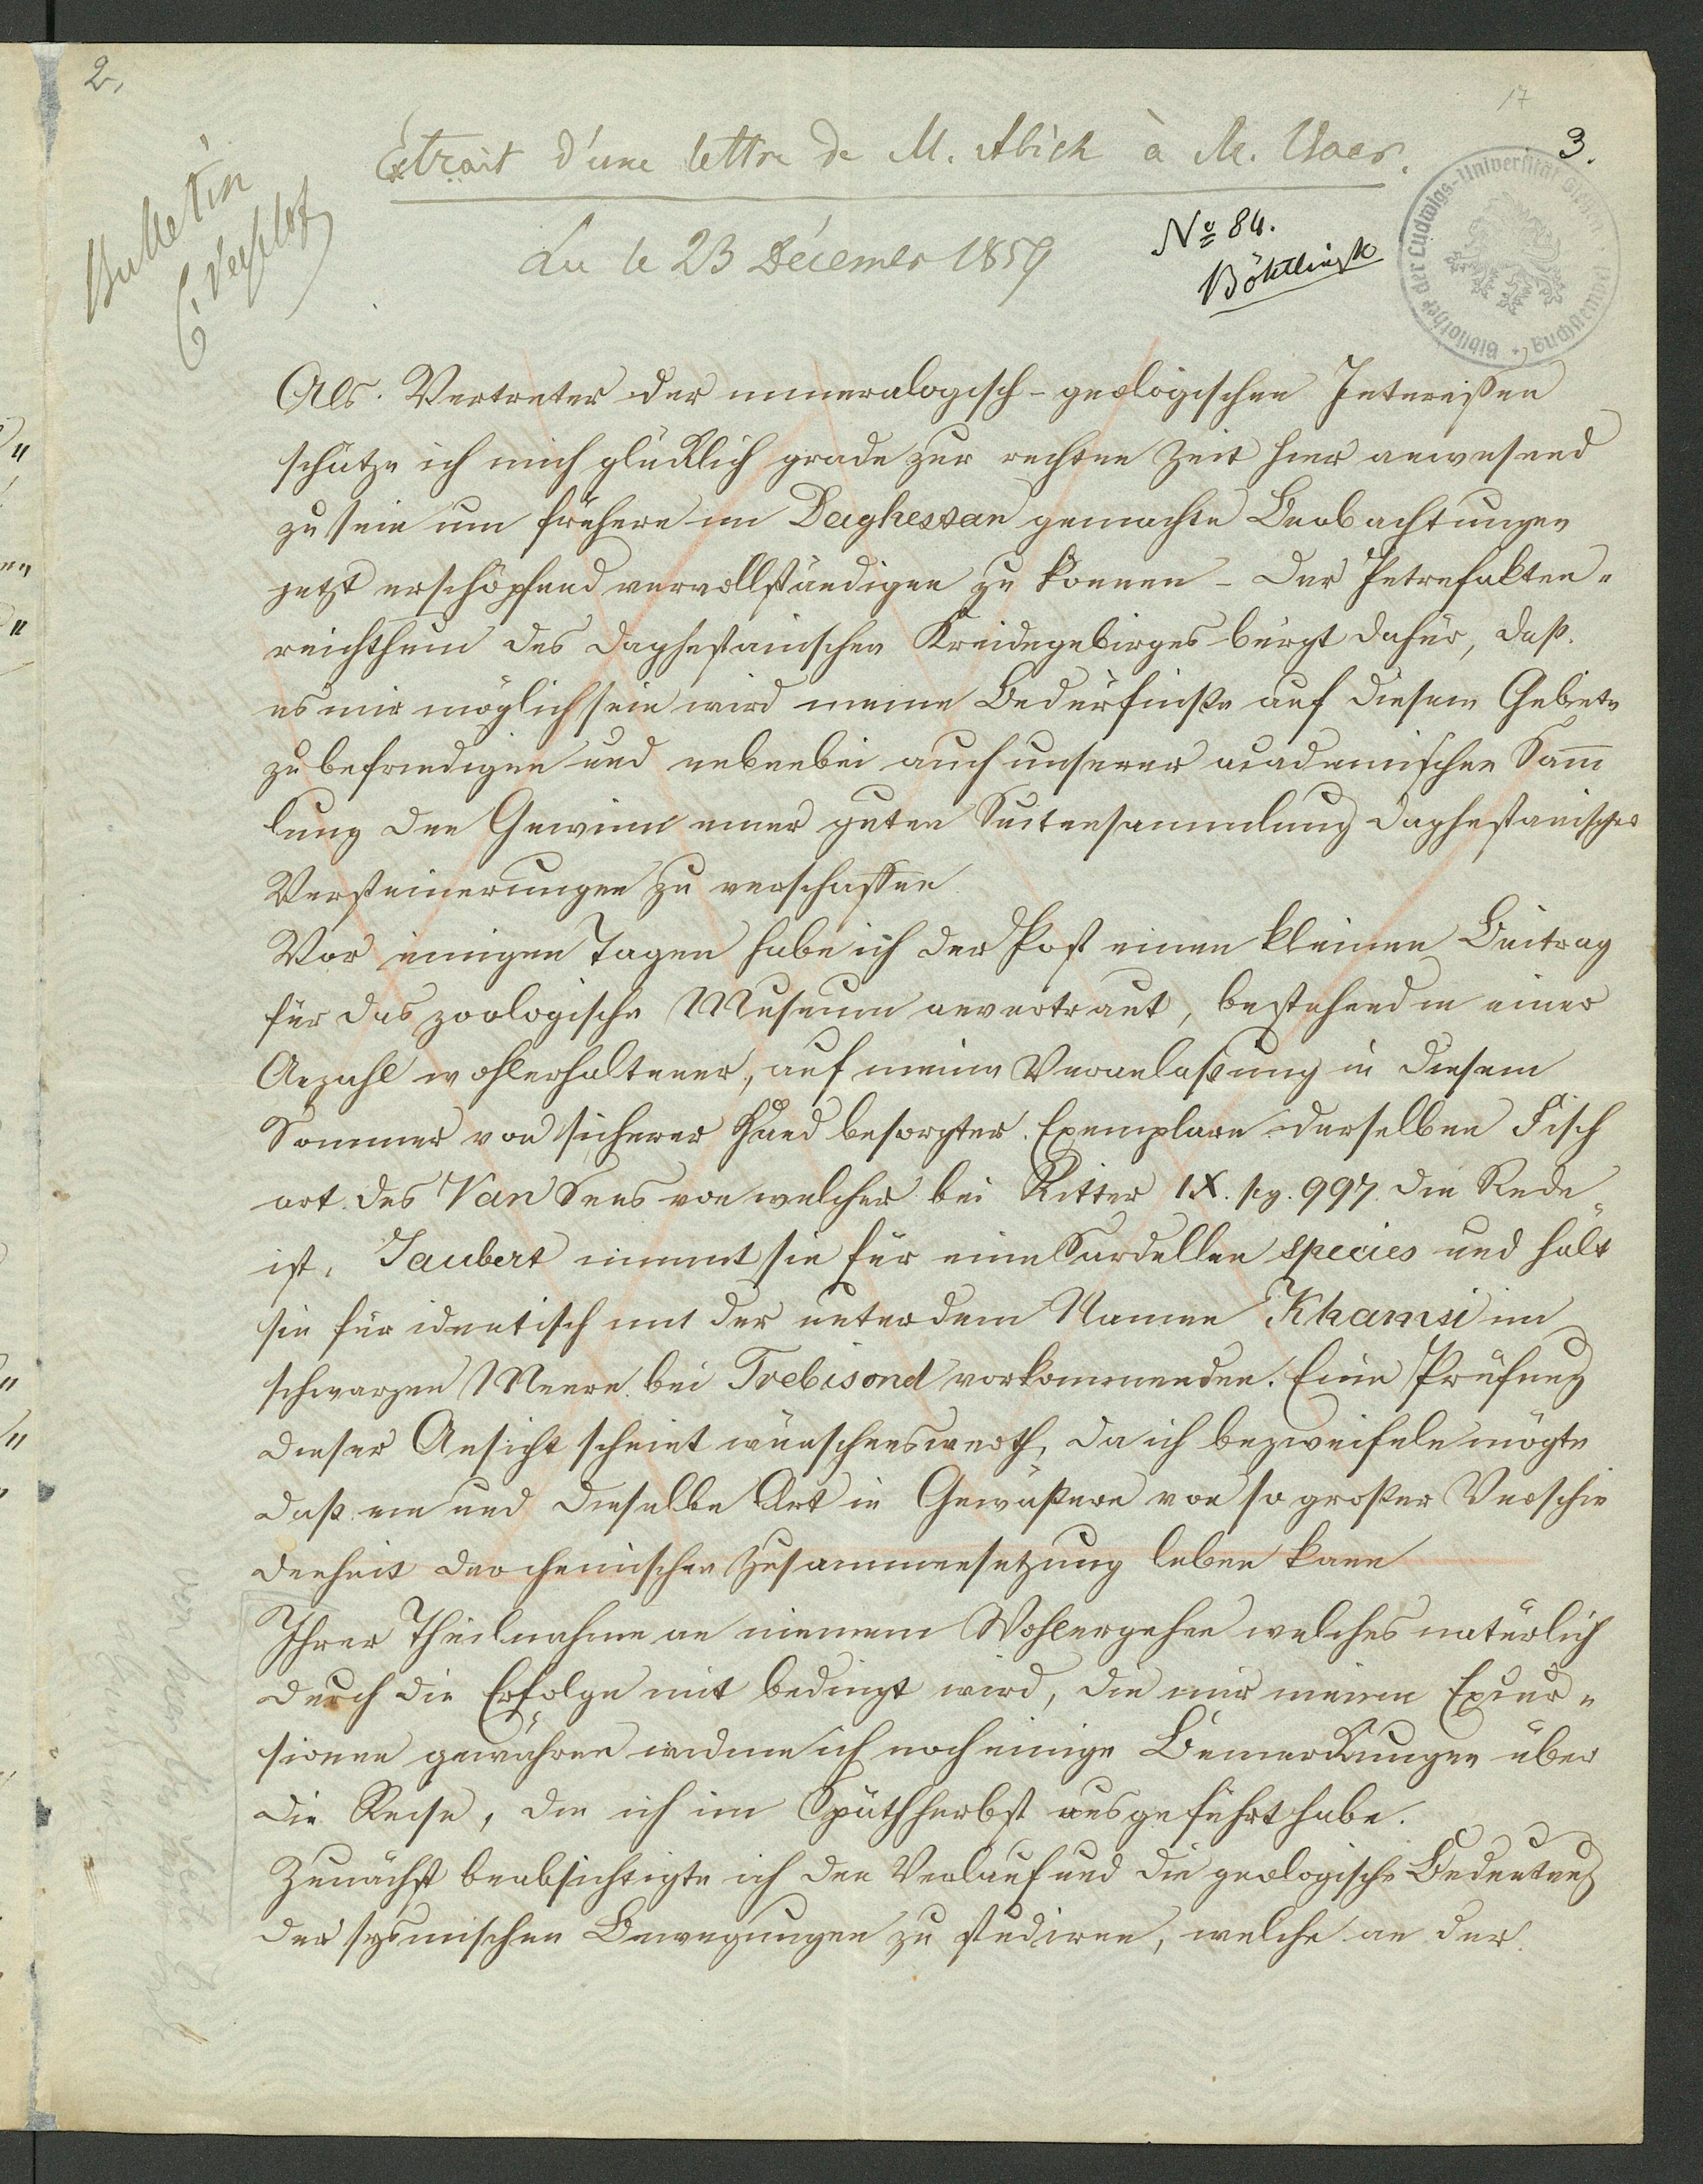 2,
17
3.
Extrait d'une lettre de M. Abich à M. Baer.
Bulletin
C. Vessélofs
Lu le 23 Décember 1859
No 84.
Böhtlingk
Bibliothek der Ludwigs-Universität Giessen
Als Vertreter der mineralogisch-geologischen Intereißen
schätze ich mich glücklich grade zur rechten Zeit hier anwesend
zu sein um frühere im Daghestan gemachte Beobachtungen
jetzt erschöpfend vervollständigen zu können - Der Petrefakten-
reichthum des daghestanischen Kreidegebirges bürgt dafür, daß
es mir möglich sein wird meine Bedürfniße auf diesem Gebiete
zu befriedigen und nebenbei auch unserer academischen Sam̅
lung den Gewinn einer guten Suitensammlung daghestanischer
Versteinerungen zu verschaffen
Vor einigen Tagen habe ich der Post einen kleinen Beitrag
für das zoologische Museum anvertraut, bestehend in einer
Anzahl wohlerhaltener, auf meine Veranlaßung in diesem
Sommer von sicherer Hand besorgter Exemplare derselben Fisch
art des Van Sees von welcher bei Ritter IX. pg. 997. die Rede
ist. Jaubert nimmt sie für eine Sardellen species und hält
sie für identisch mit der unter dem Namen Khamsi im
schwarzen Meere bei Trebisond vorkommenden. Eine Prüfung
dieser Ansicht scheint wünschenswerth, da ich bezweifeln mögte
daß ein und dieselbe Art in Gewäßern von so großer Verschie
denheit der chemischen Zusammensetzung leben kann
Ihrer Theilnahme an meinem Wohlergehen welches natürlich
durch die Erfolge mit bedingt wird, die mir meine Excur-
sionen gewähren widme ich noch einige Bemerkungen über
die Reise, die ich im Spätherbst ausgeführt habe.
Zunächst beabsichtigte ich den Verlauf und die geologische Bedeutung
der sysmischen Bewegungen zu studiren, welche an der